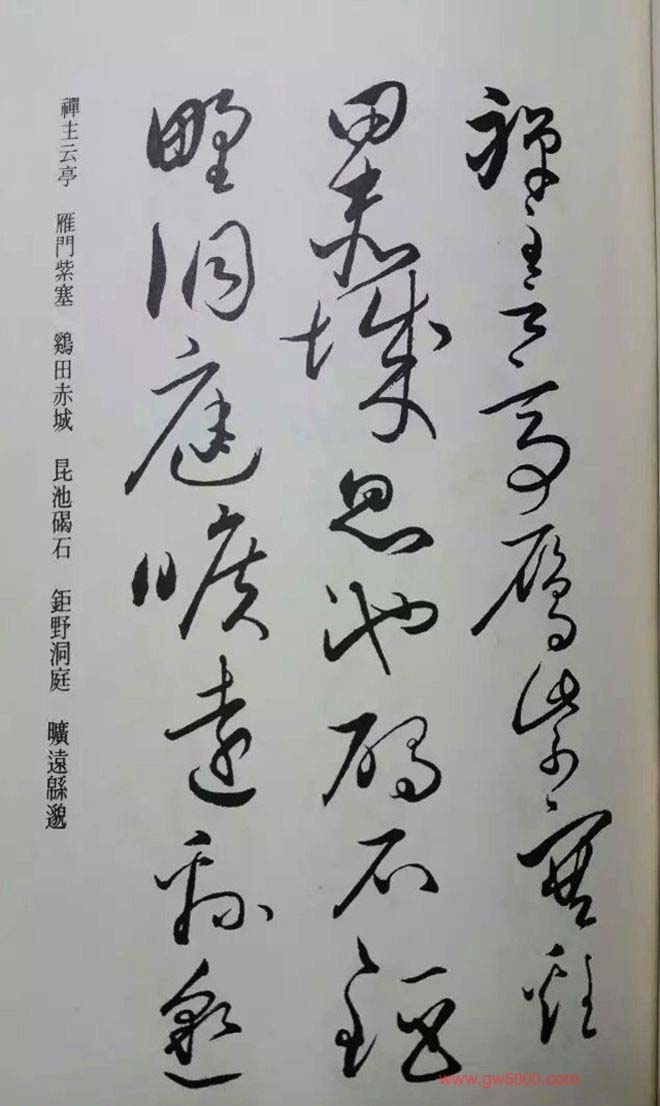 禪主云亭雁門紫塞雞
田赤城昆池碣石鉅
野洞庭曠遠緜邈
禪主云亭　雁門紫塞　鷄田赤城　昆池碣石　鉅野洞庭　曠遠緜邈
www.gw5000.com